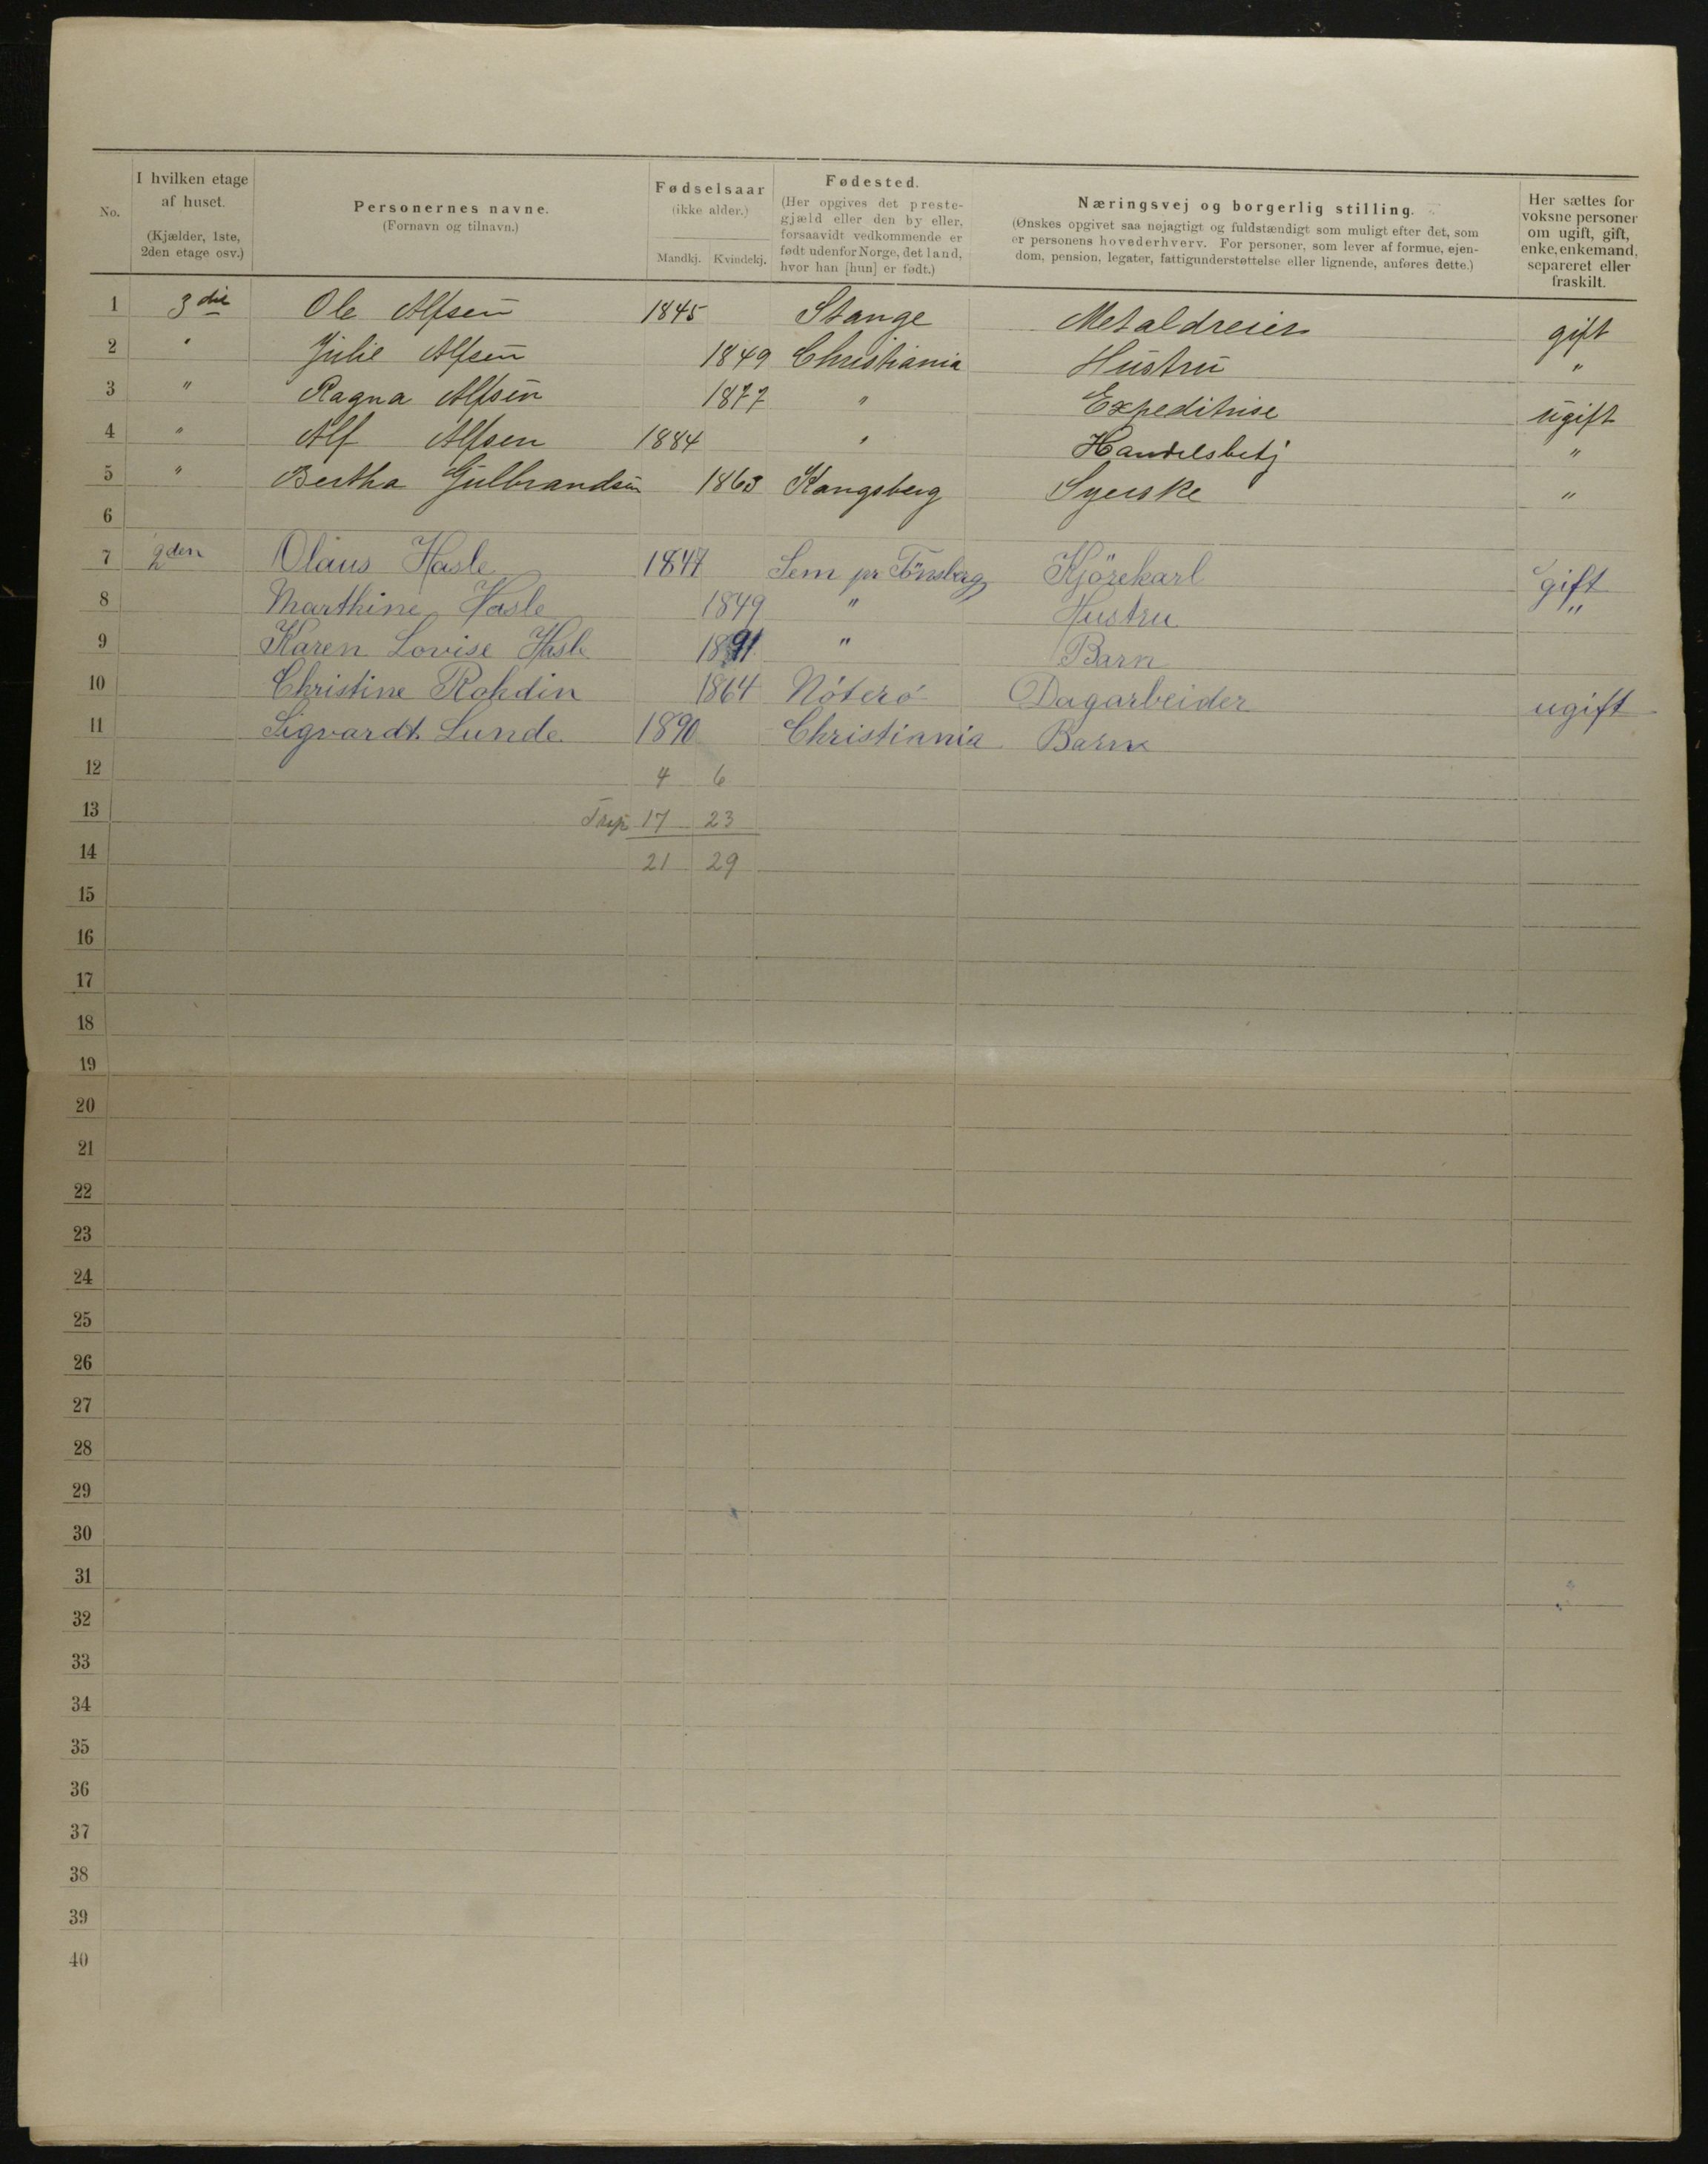 No.
I hvilken etage af huset. (Kjælder, 1ste, 2den etage osv.)
Personernes navne. (Fornavn og tilnavn.)
Fødselsaar (ikke alder.) Mandkj. Kvindekj.
Fødested. (Her opgives det prestegjæld eller den by eller, forsaavidt vedkommende er født udenfor Norge, det land, hvor han [hun] er født.)
Næringsvej og borgerlig stilling. (Ønskes opgivet saa nøjagtigt og fuldstændigt som muligt efter det, som er personens hovederhverv. For personer, som lever af formue, ejendom, pension, legater, fattigunderstøttelse eller lignende, anføres dette.)
Her sættes for voksne personer om ugift, gift, enke, enkemand, separeret eller fraskilt.
1 3die Ole Alfsen 1845 Stange Metaldreier gift
2 " Julie Alfsen 1849 Christiania Hustru "
3 " Ragna Alfsen 1877 " Expeditrise ugift
4 " Alf Alfsen 1884 " Handelsbetj "
5 " Bertha Gulbrandsen 1863 Kongsberg Syerske "
6
7 2den Olaus Hasle 1847 Sem pr Tönsberg Kjörekarl gift
8 Marthine Hasle 1849 " Hustru "
9 Karen Lovise Hasle 1891 " Barn
10 Christine Rohdin 1864 Nöterö Dagarbeider ugift
11 Sigvardt Lunde 1890 Christiania Barn
12 4 6
13 Trsp 17 23
14 21 29
15
16
17
18
19
20
21
22
23
24
25
26
27
28
29
30
31
32
33
34
35
36
37
38
39
40